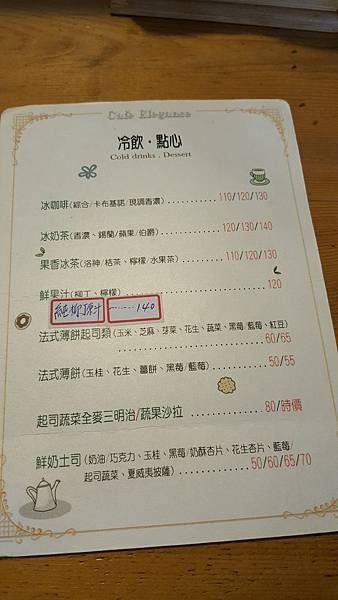 Cafe Elegance
冷飲・點心
Cold drinks . Dessert
冰咖啡(綜合/卡布基諾/現調香濃)..........110/120/130
冰奶茶(香濃、錫蘭/蘋果/伯爵)..........120/130/140
果香冰茶(洛神/桔茶、檸檬/水果茶)..........110/120/130
鮮果汁(柳丁、檸檬)..........120
純柳原汁 ......140
法式薄餅起司類(玉米、芝麻、芽菜、花生、蔬菜、黑莓/藍莓、紅豆)
..........60/65
法式薄餅(玉桂、花生、薑餅、黑莓/藍莓)..........50/55
起司蔬菜全麥三明治/蔬果沙拉..........80/時價
鮮奶土司(奶油/巧克力、玉桂、黑莓/奶酥杏片、花生杏片、藍莓/
起司蔬菜、夏威夷披薩)..........50/60/65/70